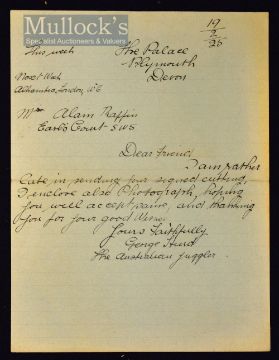 Mullock's
Specialist Auctioneers & Valuers
19
2
26
This week
The Palace
Plymouth
Devon
Next Week
Alhambra, London, WC
Mr Alam Raffin
Earl's Court SW5
Dear friend
I am rather
late in sending you signed cutting,
I enclose also Photograph, hoping
you will accept same, and thanking
you for your good
Yours Faithfully
George Hurd
The Australian Juggler